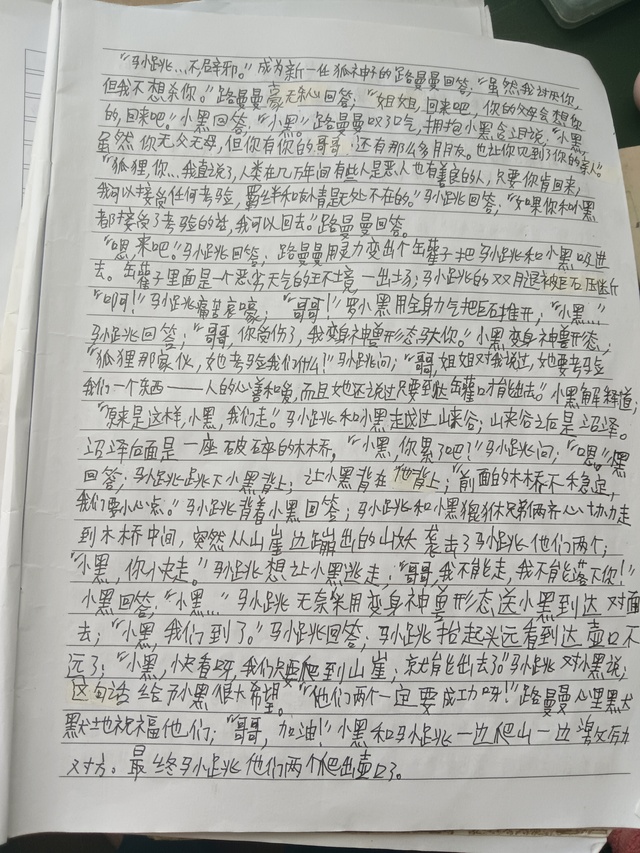 "马小跳…不,辟邪。"成为新一任狐神子的路曼曼回答;"虽然我讨厌你,
但我不想杀你。"路曼曼毫无私心回答;"姐姐,回来吧,你的父母会想你
的,回来吧。"小黑回答;"小黑。"路曼曼叹了口气,拥抱小黑含泪说,"小黑,
虽然你无父无母,但你有你的哥哥,还有那么多月友。也让你见到了你的亲人。"
"狐狸,你…我直说了,人类在几万年间有些人是恶人也有善良的人,只要你肯回来,
我可以接受任何考验,羁绊和友情是无处不在的。"马小跳回答;"如果你和小黑
都接受了考验的话,我可以回去。"路曼曼回答。
"嗯,来吧。"马小跳回答;路曼曼用灵力变出个缶雚子把马小跳和小黑吸进
去。缶雚子里面是一个恶劣天气的环境,一出场;马小跳的双腿被巨石压断
"啊!"马小跳痛苦哀嚎;"哥哥!"罗小黑用全身力气把巨石推开;"小黑…"
马小跳回答;"哥哥,你受伤了,我变身神兽形态驮你。"小黑变身神兽形态;
"狐狸那家伙,她考验我们什么!"马小跳问;"哥,姐姐对我说过,她要考验
我们一个东西——人的心善和爱,而且她还说过只要到达缶雚口才能出去。"小黑解释道;
"原来是这样,小黑,我们走。"马小跳和小黑走过山来谷;山来谷之后是沼泽。
沼泽后面是一座破碎的木桥,"小黑,你累了吧?"马小跳问;"嗯。"小黑
回答;马小跳跳下小黑背上;让小黑背在他背上;"前面的木桥不稳定,
我们要小心点。"马小跳背着小黑回答;马小跳和小黑貔貅兄弟俩齐心协力走
到木桥中间,突然从山崖边蹦出的山妖袭击了马小跳他们两个;
"小黑,你快走。"马小跳想让小黑逃走;"哥哥,我不能走,我不能落下你!"
小黑回答;"小黑…"马小跳无奈采用变身神兽形态送小黑到达对面
去;"小黑,我们到了。"马小跳回答;马小跳抬起头远看到达壶口不
远了;"小黑,快看呀,我们只要爬到山崖;就能出去了。"马小跳对小黑说;
这句话给予小黑很大希望。"他们两个一定要成功呀!"路曼曼心里默
默地祝福他们;"哥哥,加油!"小黑和马小跳一边爬山一边激励
对方。最终马小跳他们两个爬出壶口了。